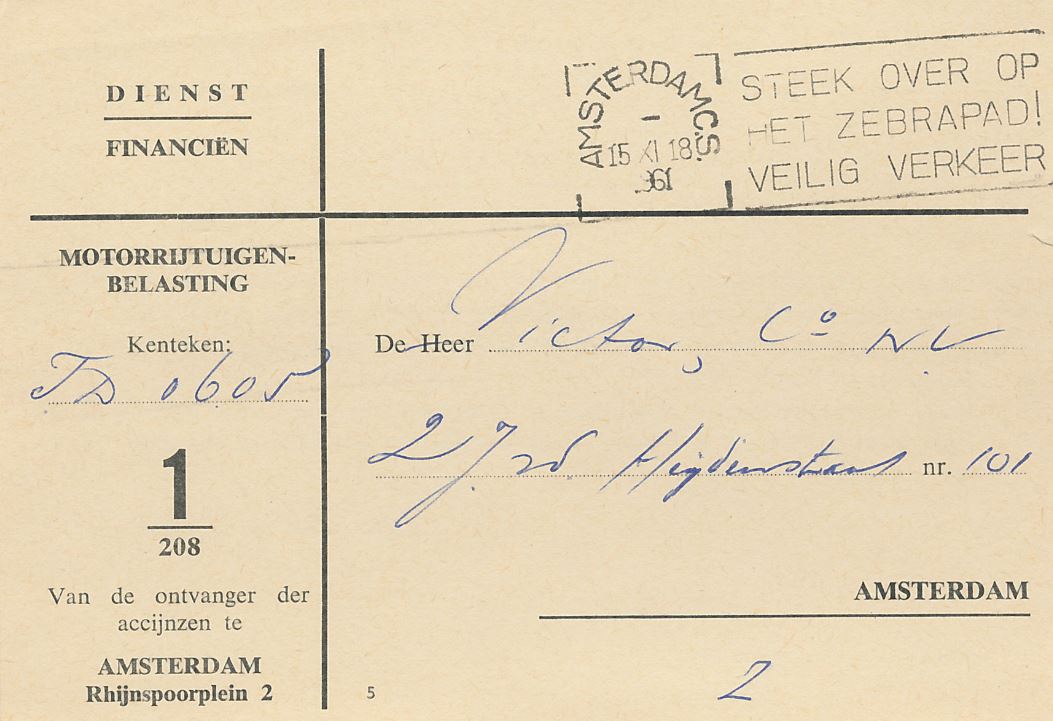 DIENST
FINANCIËN
AMSTERDAM C.S.
1
15 XI 18
1961
STEEK OVER OP
HET ZEBRAPAD!
VEILIG VERKEER
MOTORRIJTUIGEN-
BELASTING
Kenteken:
TD 0605
1
208
Van de ontvanger der
accijnzen te
AMSTERDAM
Rhijnspoorplein 2
De Heer Victor, Co NV
2 J vd Heijdenstraat nr. 101
AMSTERDAM
2
5